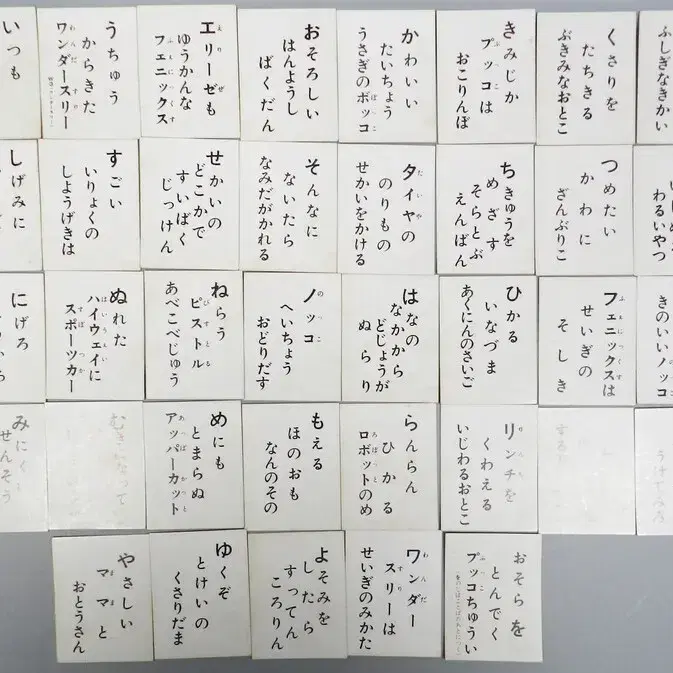 いつも
うちゅう
からきた
ワンダースリー
わんだ すり
エリーゼも
えり ぜ
ゆうかんな
フェニックス
ふぇにっくす
おそろしい
はんようし
ばくだん
かわいい
たいちょう
うさぎのボッコ
ぼっこ
きみじか
プッコは
ぷっこ
おこりんぼ
くさりを
たちきる
ぶきみなおとこ
ふしぎなきかい
しげみに
すごい
いりょくの
しようげきは
せかいの
どこかで
すいばく
じっけん
そんなに
ないたら
なみだがかれる
タイヤの
たいや
のりもの
せかいをかける
ちきゅうを
めざす
そらとぶ
えんばん
つめたい
かわに
ざんぶりこ
わるいやつ
にげろ
ぬれた
ハイウェイに
はいうぇい
スポーツカー
すぽ つか
ねらう
ピストル
ぴすとる
あべこべじゅう
ノッコ
のっこ
へいちょう
おどりだす
はなの
なかから
どじょうが
ぬらり
ひかる
いなづま
あくにんのさいご
フェニックスは
ふぇにっくす
せいぎの
そしき
きのいいノッコ
のっこ
みにく
せんそう
むきになって
めにも
とまらぬ
アッパーカット
あっぱ かっと
もえる
ほのおも
なんのその
らんらん
ひかる
ロボットのめ
ろぼっと
リンチを
りんち
くわえる
いじわるおとこ
うけてみろ
やさしい
ママと
まま
おとうさん
ゆくぞ
とけいの
くさりだま
よそみを
したら
すってん
ころりん
ワンダー
わんだ
スリーは
すり
せいぎのみかた
おそらを
とんでく
プッコちゅうい
ぷっこ